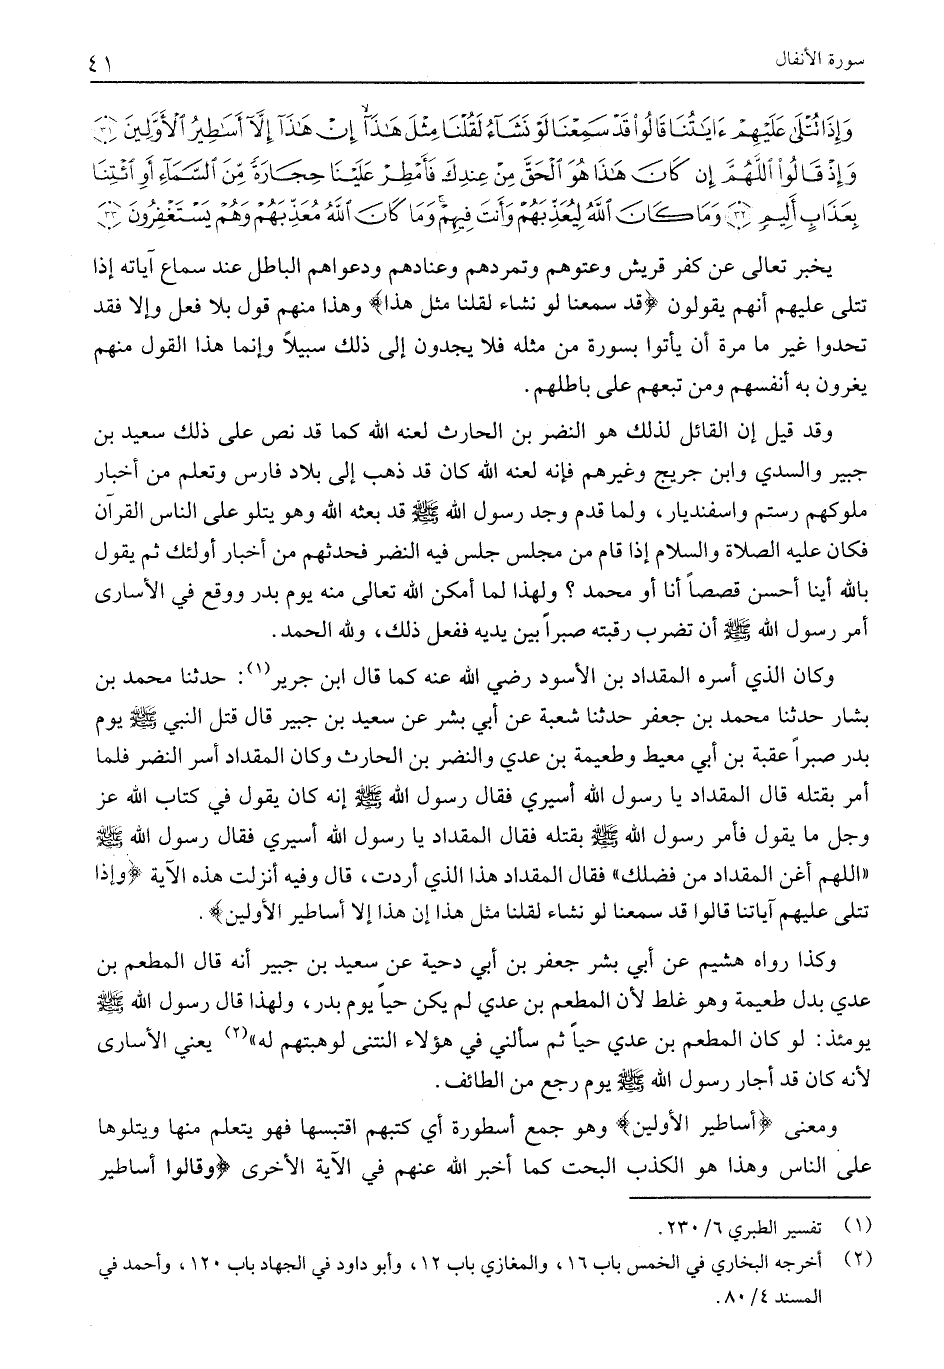 سورة الأنفال
٤١
وَإِذَا تُتْلَىٰ عَلَيْهِمْ ءَايَـٰتُنَا قَالُوا۟ قَدْ سَمِعْنَا لَوْ نَشَآءُ لَقُلْنَا مِثْلَ هَـٰذَآ ۙ إِنْ هَـٰذَآ إِلَّآ أَسَـٰطِيرُ ٱلْأَوَّلِينَ ﴿٣١﴾
وَإِذْ قَالُوا۟ ٱللَّهُمَّ إِن كَانَ هَـٰذَا هُوَ ٱلْحَقَّ مِنْ عِندِكَ فَأَمْطِرْ عَلَيْنَا حِجَارَةً مِّنَ ٱلسَّمَآءِ أَوِ ٱئْتِنَا
بِعَذَابٍ أَلِيمٍ ﴿٣٢﴾ وَمَا كَانَ ٱللَّهُ لِيُعَذِّبَهُمْ وَأَنتَ فِيهِمْ ۚ وَمَا كَانَ ٱللَّهُ مُعَذِّبَهُمْ وَهُمْ يَسْتَغْفِرُونَ ﴿٣٣﴾
يخبر تعالى عن كفر قريش وعتوهم وتمردهم وعنادهم ودعواهم الباطل عند سماع آياته إذا
تتلى عليهم أنهم يقولون ﴿قد سمعنا لو نشاء لقلنا مثل هذا﴾ وهذا منهم قول بلا فعل وإلا فقد
تحدوا غير ما مرة أن يأتوا بسورة من مثله فلا يجدون إلى ذلك سبيلاً وإنما هذا القول منهم
يغرون به أنفسهم ومن تبعهم على باطلهم.
وقد قيل إن القائل لذلك هو النضر بن الحارث لعنه الله كما قد نص على ذلك سعيد بن
جبير والسدي وابن جريج وغيرهم فإنه لعنه الله كان قد ذهب إلى بلاد فارس وتعلم من أخبار
ملوكهم رستم واسفنديار، ولما قدم وجد رسول الله ﷺ قد بعثه الله وهو يتلو على الناس القرآن
فكان عليه الصلاة والسلام إذا قام من مجلس جلس فيه النضر فحدثهم من أخبار أولئك ثم يقول
بالله أينا أحسن قصصاً أنا أو محمد ؟ ولهذا لما أمكن الله تعالى منه يوم بدر ووقع في الأسارى
أمر رسول الله ﷺ أن تضرب رقبته صبراً بين يديه ففعل ذلك، ولله الحمد.
وكان الذي أسره المقداد بن الأسود رضي الله عنه كما قال ابن جرير(١): حدثنا محمد بن
بشار حدثنا محمد بن جعفر حدثنا شعبة عن أبي بشر عن سعيد بن جبير قال قتل النبي ﷺ يوم
بدر صبراً عقبة بن أبي معيط وطعيمة بن عدي والنضر بن الحارث وكان المقداد أسر النضر فلما
أمر بقتله قال المقداد يا رسول الله أسيري فقال رسول الله ﷺ إنه كان يقول في كتاب الله عز
وجل ما يقول فأمر رسول الله ﷺ بقتله فقال المقداد يا رسول الله أسيري فقال رسول الله ﷺ
«اللهم أغن المقداد من فضلك» فقال المقداد هذا الذي أردت، قال وفيه أنزلت هذه الآية ﴿وإذا
تتلى عليهم آياتنا قالوا قد سمعنا لو نشاء لقلنا مثل هذا إن هذا إلا أساطير الأولين﴾.
وكذا رواه هشيم عن أبي بشر جعفر بن أبي دحية عن سعيد بن جبير أنه قال المطعم بن
عدي بدل طعيمة وهو غلط لأن المطعم بن عدي لم يكن حياً يوم بدر، ولهذا قال رسول الله ﷺ
يومئذ: لو كان المطعم بن عدي حياً ثم سألني في هؤلاء النتنى لوهبتهم له»(٢) يعني الأسارى
لأنه كان قد أجار رسول الله ﷺ يوم رجع من الطائف.
ومعنى ﴿أساطير الأولين﴾ وهو جمع أسطورة أي كتبهم اقتبسها فهو يتعلم منها ويتلوها
على الناس وهذا هو الكذب البحت كما أخبر الله عنهم في الآية الأخرى ﴿وقالوا أساطير
(١) تفسير الطبري ٦/ ٢٣٠.
(٢) أخرجه البخاري في الخمس باب ١٦، والمغازي باب ١٢، وأبو داود في الجهاد باب ١٢٠، وأحمد في
المسند ٤/ ٨٠.